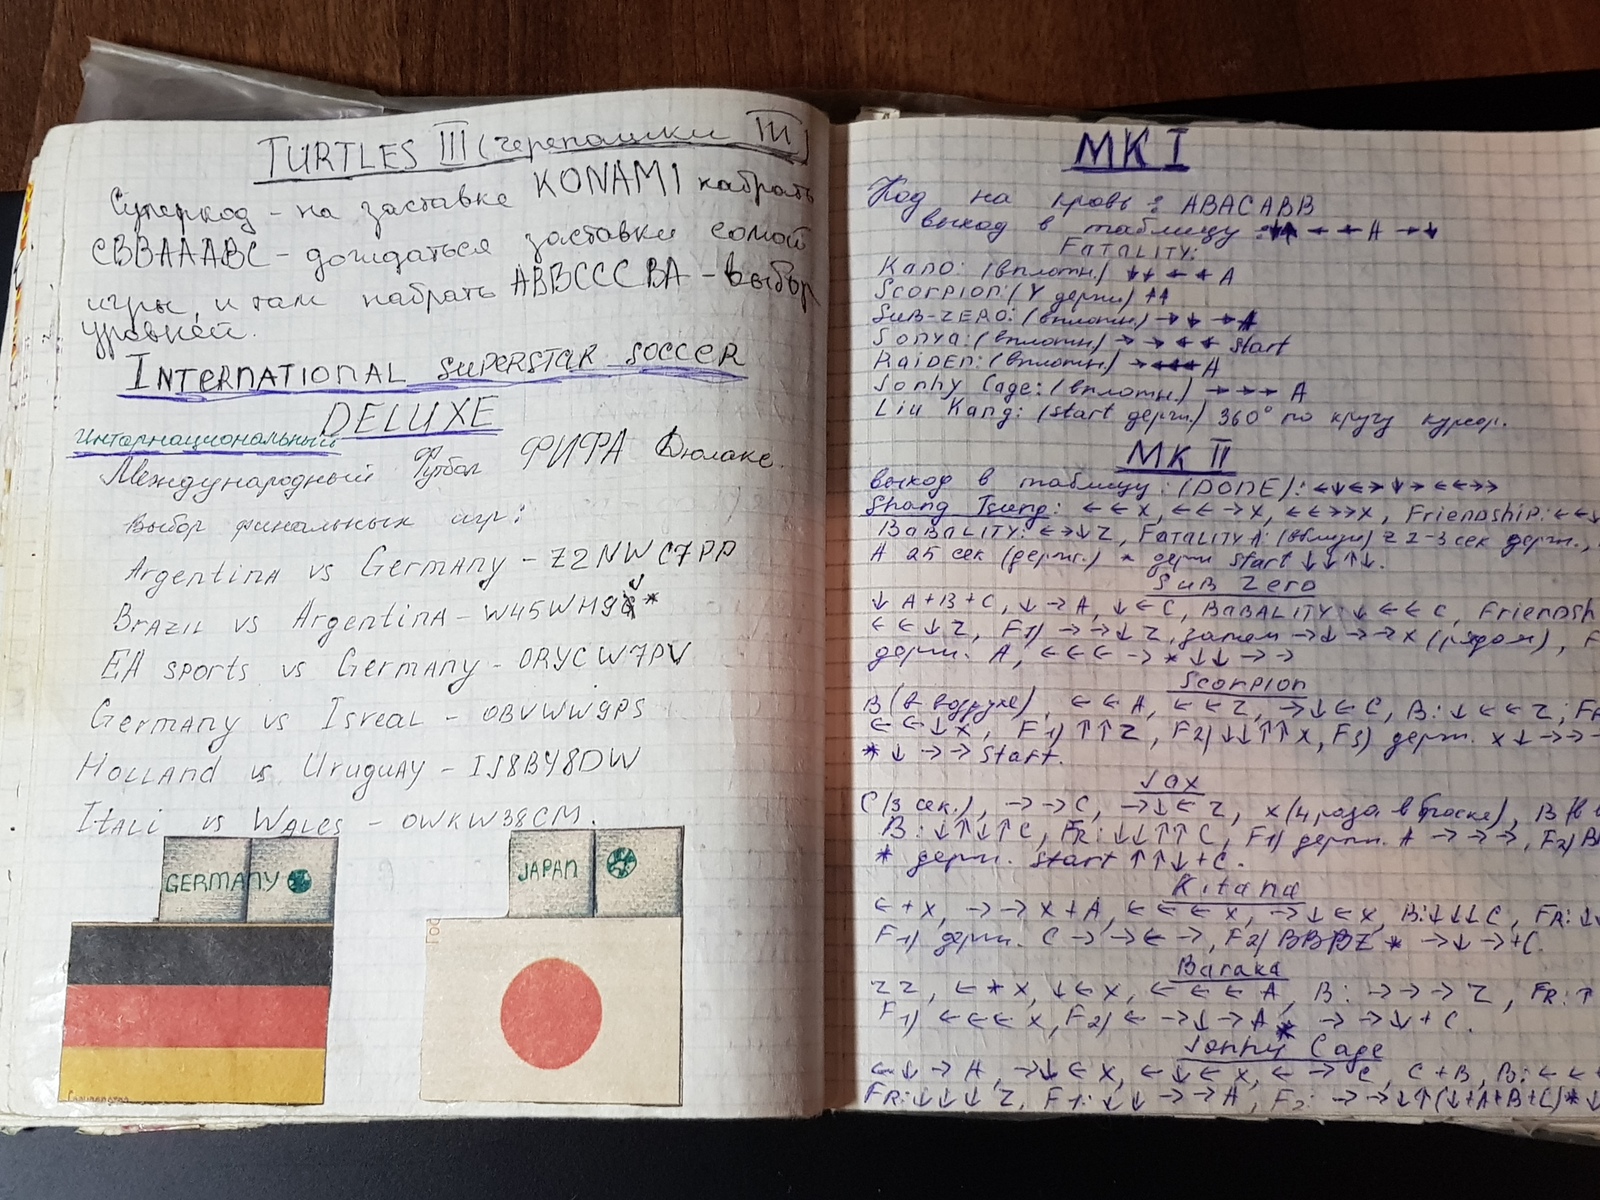 TURTLES III (черепашки III)
Суперкод - на заставке KONAMI набрать
CBBAAABC - дождаться заставки самой
игры, и там набрать ABBCCCBA - выбор
уровней.
INTERNATIONAL SUPERSTAR SOCCER
DELUXE
Интернациональный
Международный Футбол ФИФА Дюлакс.
Выбор финальных игр:
Argentina vs Germany - Z2NWC7PP
Brazil vs Argentina - W45WH9 *
EA sports vs Germany - ORYCW7PV
Germany vs Isreal - OBVWW9PS
Holland vs Uruguay - IJ8BY8DW
Itali vs Wales - OWKW38CM.
GERMANY
JAPAN
MK I
Код на кровь: ABACABB
выход в таблицу: ← ← A → ↓
FATALITY:
Kano: (вплотн.) ↓↓ ← ← A
Scorpion: (Y держи) ↑↑
SUB-ZERO: (вплотн.) → ↓ → A
Sonya: (вплотн) → → ← ← Start
Raiden: (вплотн) → ← ← ← A
Jonhy Cage: (вплотн) → → → A
Liu Kang: (start держ.) 360° по кругу курсор.
MK II
выход в таблицу: (DONE): ← ↓ ← → ↓ → ← ← → →
Shang Tsung: ← ← X, ← ← → X, ← ← → → X, Friendship: ← ← ↓
BABALITY: ← → ↓ Z, FATALITY A: Z 2-3 сек держ.,
A 25 сек (держ.) * держи Start ↓ ↓ ↑ ↓.
Sub Zero
↓ A + B + C, ↓ → A, ↓ ← C, BABALITY: ↓ ← ← C, Friendsh
← ← ↓ Z, F1) → → ↓ Z, затем → ↓ → → X (рядом), F
держ. A, ← ← ← → * ↓ ↓ → →
Scorpion
B (в воздухе), ← ← A, ← ← Z, → ↓ ← C, B: ↓ ← ← Z; FR
← ← ↓ X, F1) ↑↑ Z, F2) ↓↓↑↑ X, F3) держ. X ↓ → →
* ↓ → → Start.
Jax
C (3 сек.), → → C, → ↓ ← Z, X (4 раза в броске), B (в
B: ↓↑↓↑ C, FR: ↓↓↑↑ C, F1) держ. A → → →, F2) B
* держ. Start ↑ ↑ ↓ + C.
Kitana
← + X, → → X + A, ← ← ← X, → ↓ ← X, B: ↓↓↓ C, FR: ↓↓
F1) держ. C → → ← →, F2) BBBZ * → ↓ → + C.
Baraka
Z Z, ← * X, ↓ ← X, ← ← ← A, B: → → → Z, FR: ↑
F1) ← ← ← X, F2) ← → ↓ → A * → → ↓ + C.
Jonny Cage
← ↓ → A, → ↓ ← X, ← ↓ ← X, ← → C, C + B, B: ← ←
FR: ↓↓↓↓ Z, F1: ↓ ↓ → → A, F2: → → ↓ ↑ (↓+A+B+C) * ↓